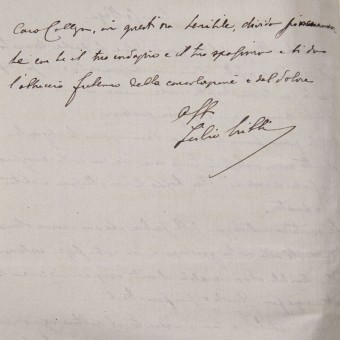 Caro Collega, in questi ora terribile, divido
te con te il tuo cordoglio e il tuo spasimo e ti do
l'abbraccio fraterno della consolazione e del dolore
aff